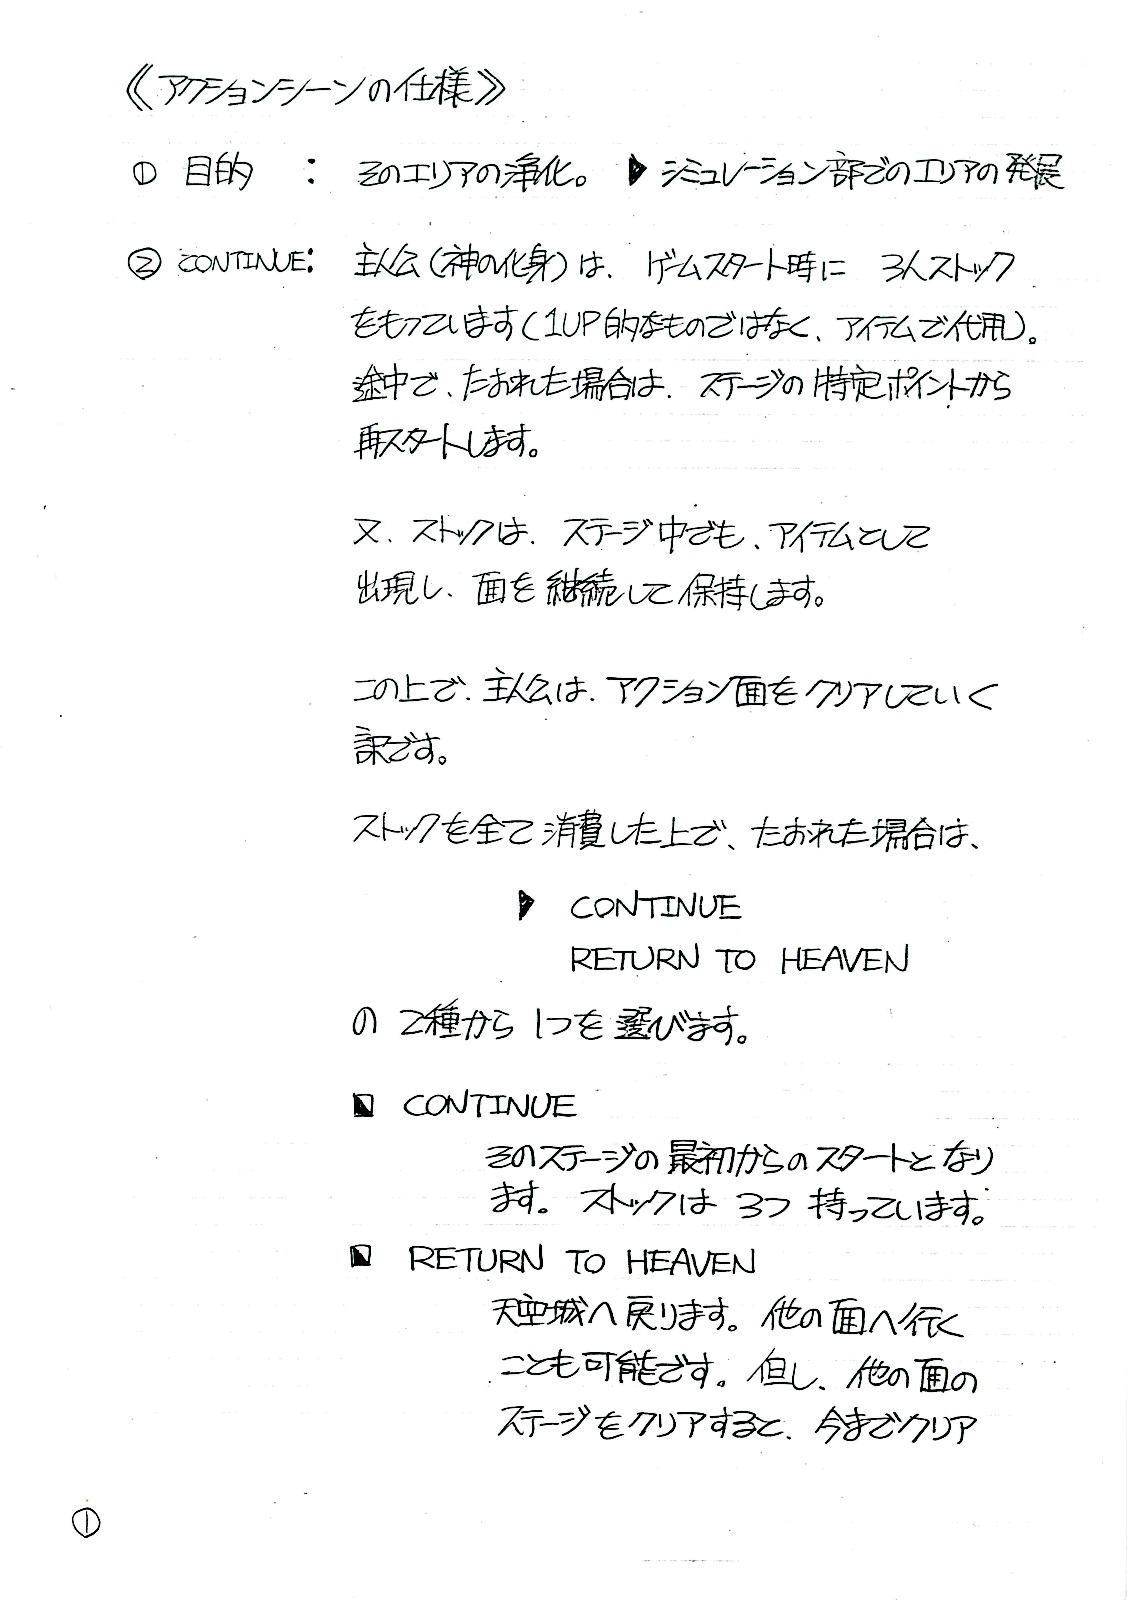 《アクションシーンの仕様》
① 目的 : そのエリアの浄化。 ▶ シミュレーション部でのエリアの発展
② CONTINUE: 主人公(神の化身)は、ゲームスタート時に 3人ストック
をもっています(1UP的なものではなく、アイテムで代用)。
途中で、たおれた場合は、ステージの特定ポイントから
再スタートします。
又、ストックは、ステージ中でも、アイテムとして
出現し、面を継続して保持します。
この上で、主人公は、アクション面をクリアしていく
訳です。
ストックを全て消費した上で、たおれた場合は、
▶ CONTINUE
RETURN TO HEAVEN
の 2種から 1つを選びます。
◣ CONTINUE
そのステージの最初からのスタートとなり
ます。ストックは 3つ 持っています。
◣ RETURN TO HEAVEN
天空城へ戻ります。他の面へ行く
ことも可能です。但し、他の面の
ステージをクリアすると、今までクリア
①